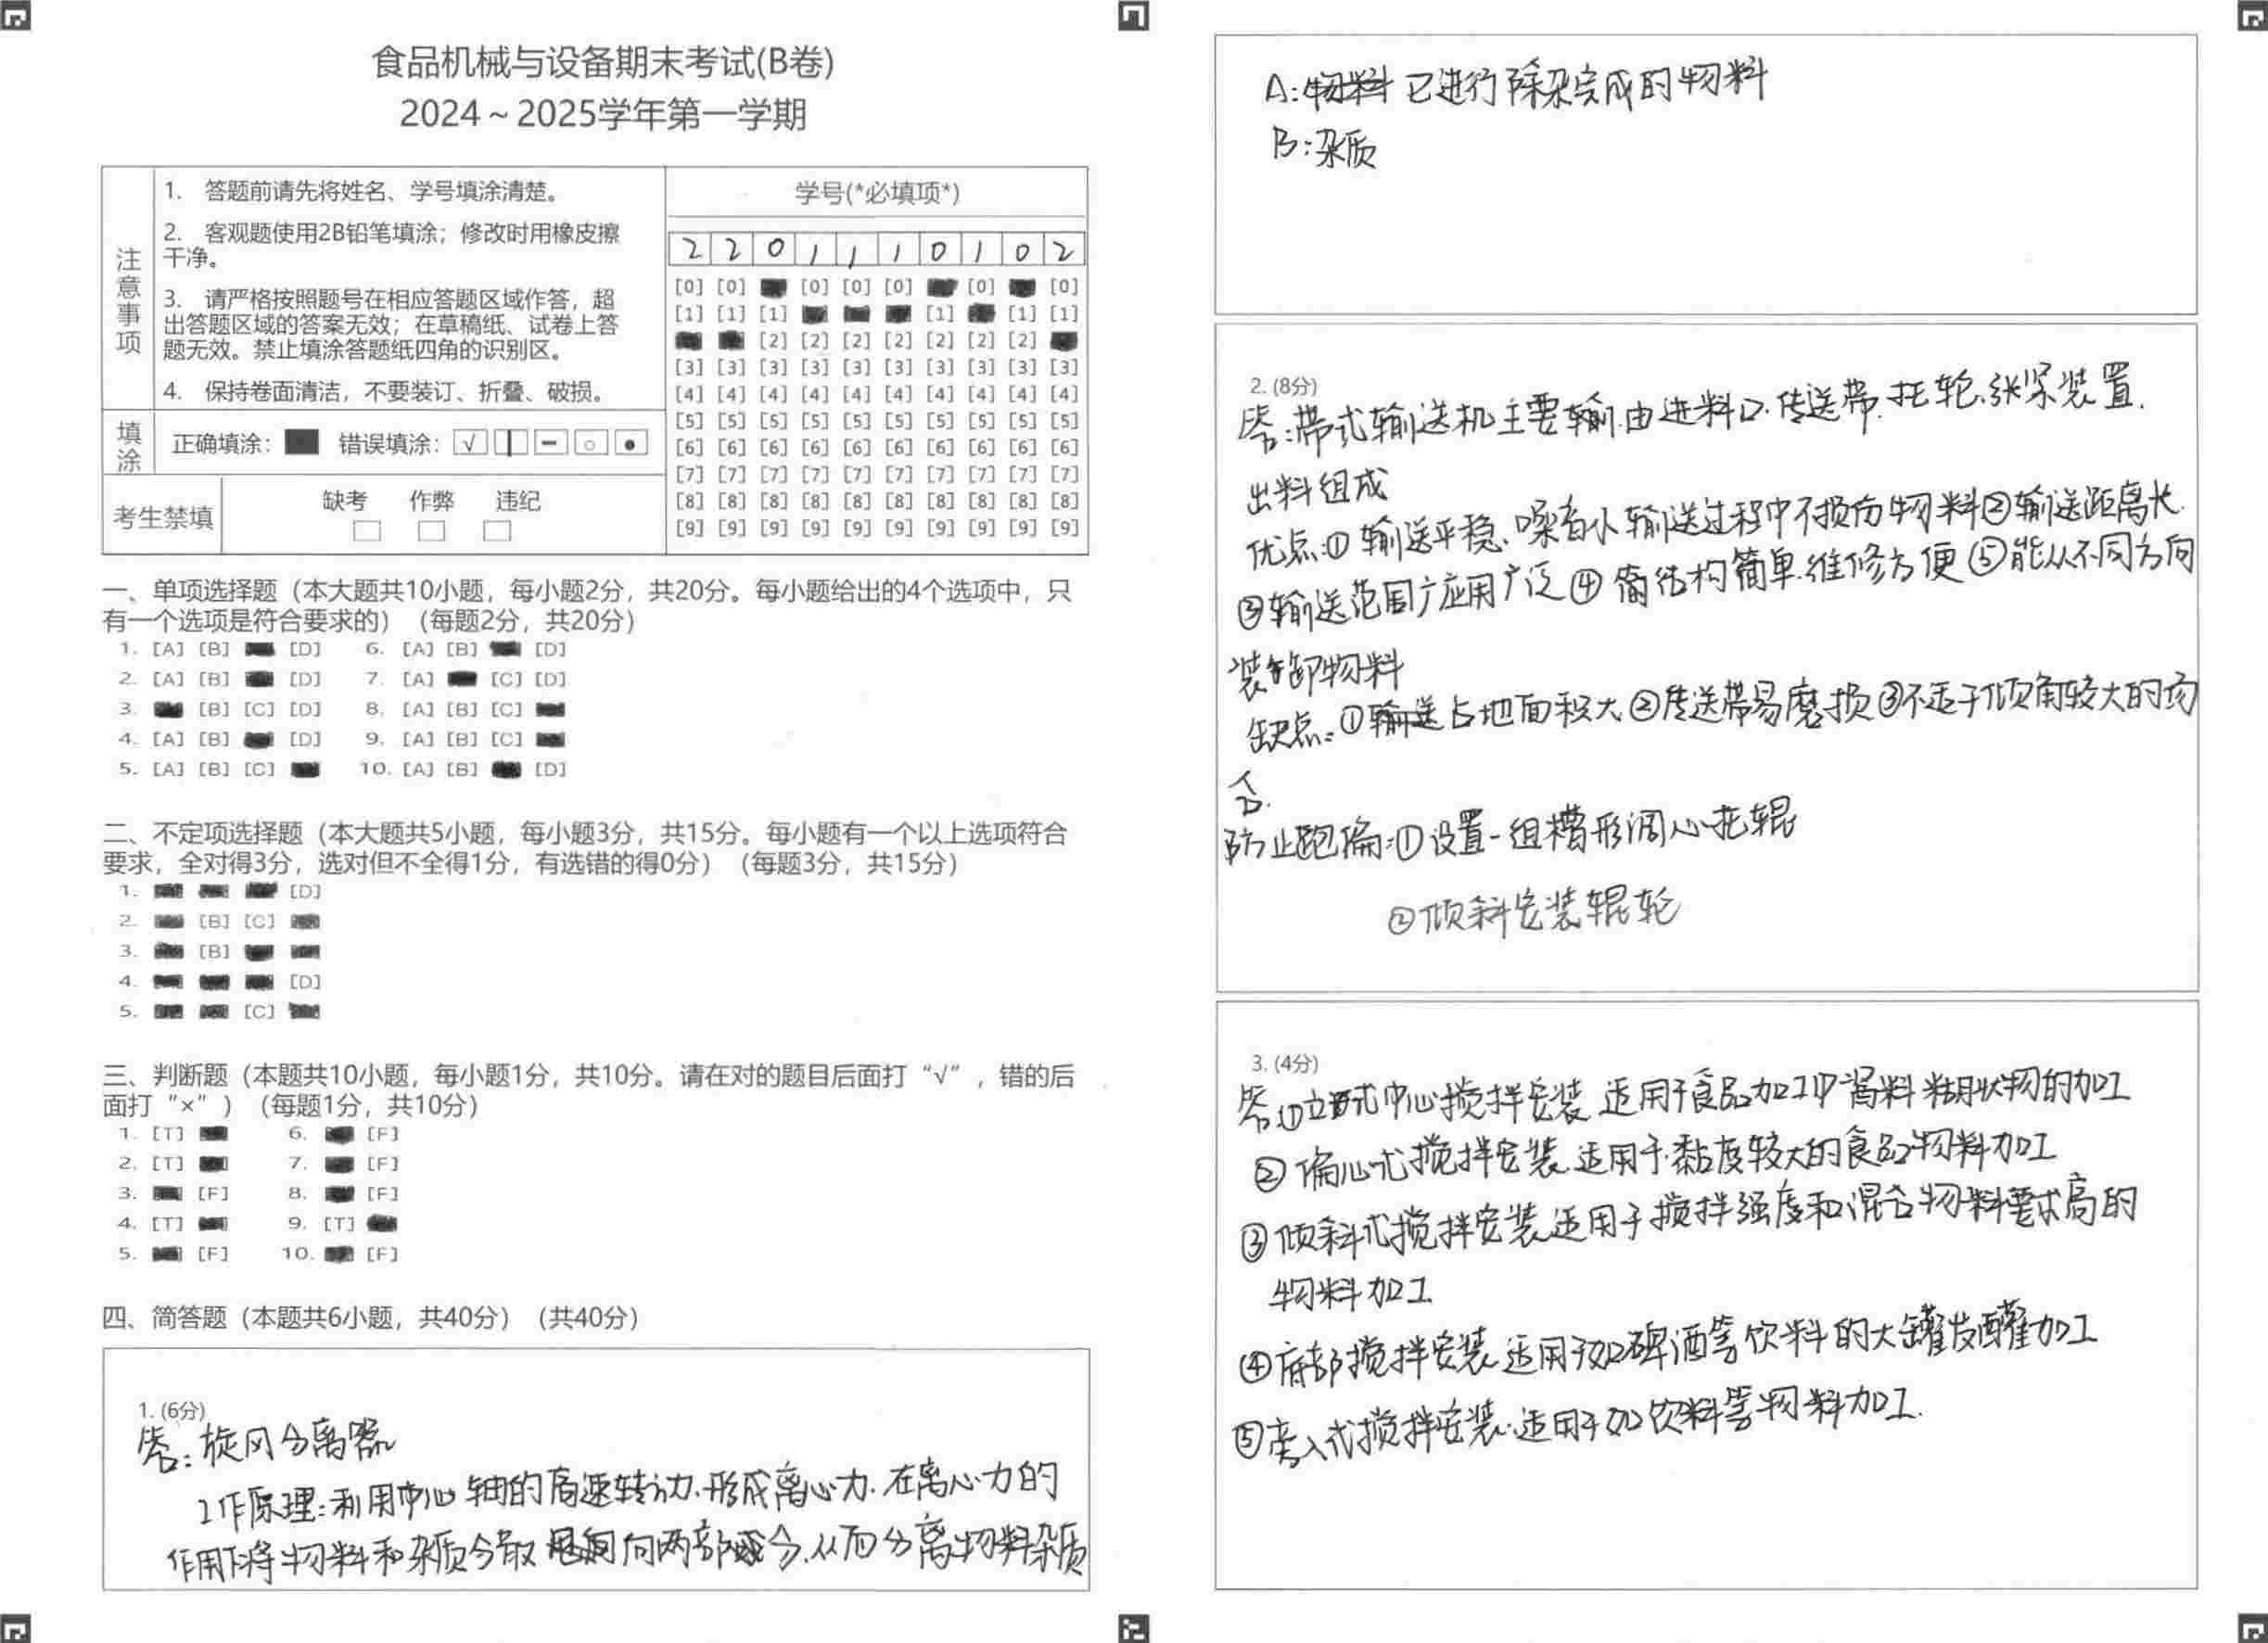 食品机械与设备期末考试(B卷)
2024～2025学年第一学期
注意事项
1. 答题前请先将姓名、学号填涂清楚。
2. 客观题使用2B铅笔填涂；修改时用橡皮擦
干净。
3. 请严格按照题号在相应答题区域作答，超
出答题区域的答案无效；在草稿纸、试卷上答
题无效。禁止填涂答题纸四角的识别区。
4. 保持卷面清洁，不要装订、折叠、破损。
填涂
正确填涂： 错误填涂：
考生禁填
缺考 作弊 违纪
学号(*必填项*)
2 2 0 1 1 1 0 1 0 2
[0] [0] [0] [0] [0] [0] [0]
[1] [1] [1] [1] [1] [1]
[2] [2] [2] [2] [2] [2] [2]
[3] [3] [3] [3] [3] [3] [3] [3] [3] [3]
[4] [4] [4] [4] [4] [4] [4] [4] [4] [4]
[5] [5] [5] [5] [5] [5] [5] [5] [5] [5]
[6] [6] [6] [6] [6] [6] [6] [6] [6] [6]
[7] [7] [7] [7] [7] [7] [7] [7] [7] [7]
[8] [8] [8] [8] [8] [8] [8] [8] [8] [8]
[9] [9] [9] [9] [9] [9] [9] [9] [9] [9]
一、单项选择题（本大题共10小题，每小题2分，共20分。每小题给出的4个选项中，只
有一个选项是符合要求的）（每题2分，共20分）
1. [A] [B] [D] 6. [A] [B] [D]
2. [A] [B] [D] 7. [A] [C] [D]
3. [B] [C] [D] 8. [A] [B] [C]
4. [A] [B] [D] 9. [A] [B] [C]
5. [A] [B] [C] 10. [A] [B] [D]
二、不定项选择题（本大题共5小题，每小题3分，共15分。每小题有一个以上选项符合
要求，全对得3分，选对但不全得1分，有选错的得0分）（每题3分，共15分）
1. [D]
2. [B] [C]
3. [B]
4. [D]
5. [C]
三、判断题（本题共10小题，每小题1分，共10分。请在对的题目后面打“√”，错的后
面打“×”）（每题1分，共10分）
1. [T] 6. [F]
2. [T] 7. [F]
3. [F] 8. [F]
4. [T] 9. [T]
5. [F] 10. [F]
四、简答题（本题共6小题，共40分）（共40分）
1. (6分)
答：旋风分离器
工作原理：利用中心轴的高速转动,形成离心力.在离心力的
作用下将物料和杂质分散 向两部分.从而分离物料杂质
A：物料已进行除杂完成的物料
B：杂质
2. (8分)
答：带式输送机主要输.由进料口.传送带.托轮.张紧装置.
出料组成
优点:①输送平稳.噪音小输送过程中不损伤物料②输送距离长.
③输送范围广应用广泛④简结构简单.维修方便⑤能从不同方向
装卸物料
缺点:①输送占地面积大②传送带易磨损③不适于倾角较大的场
合.
防止跑偏:①设置一组槽形调心托辊
②倾斜安装辊轮
3. (4分)
答.①立式中心搅拌安装 适用于食品加工中 粘状物的加工
②偏心式搅拌安装.适用于黏度较大的食品物料加工
③倾斜式搅拌安装适用于搅拌强度和混合物料要求高的
物料加工
④底部搅拌安装.适用于如啤酒等饮料的大罐发酵加工
⑤旁入式搅拌安装.适用于如饮料等物料加工.